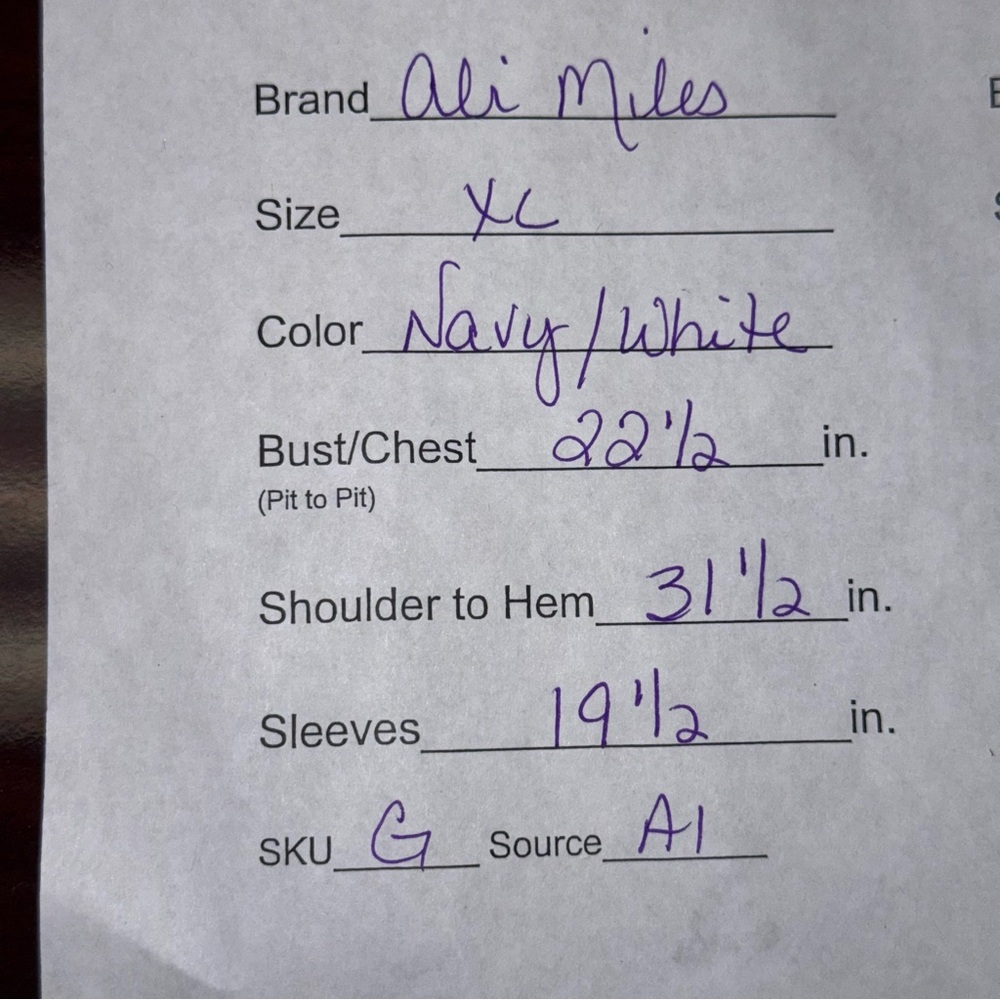 Brand Ali Miles
Size XL
Color Navy/White
Bust/Chest 22 1/2 in.
(Pit to Pit)
Shoulder to Hem 31 1/2 in.
Sleeves 19 1/2 in.
SKU G Source A1